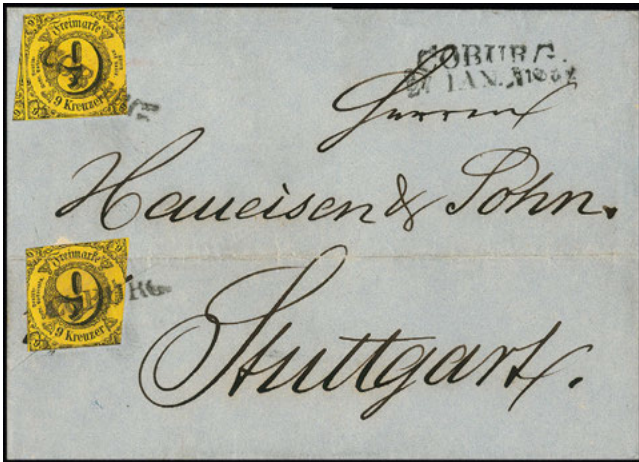 Freimarke
9
9 Kreuzer
COBURG.
JAN.
Herren
Haueisen & Sohn.
Freimarke
9
9 Kreuzer
COBURG.
Stuttgart.